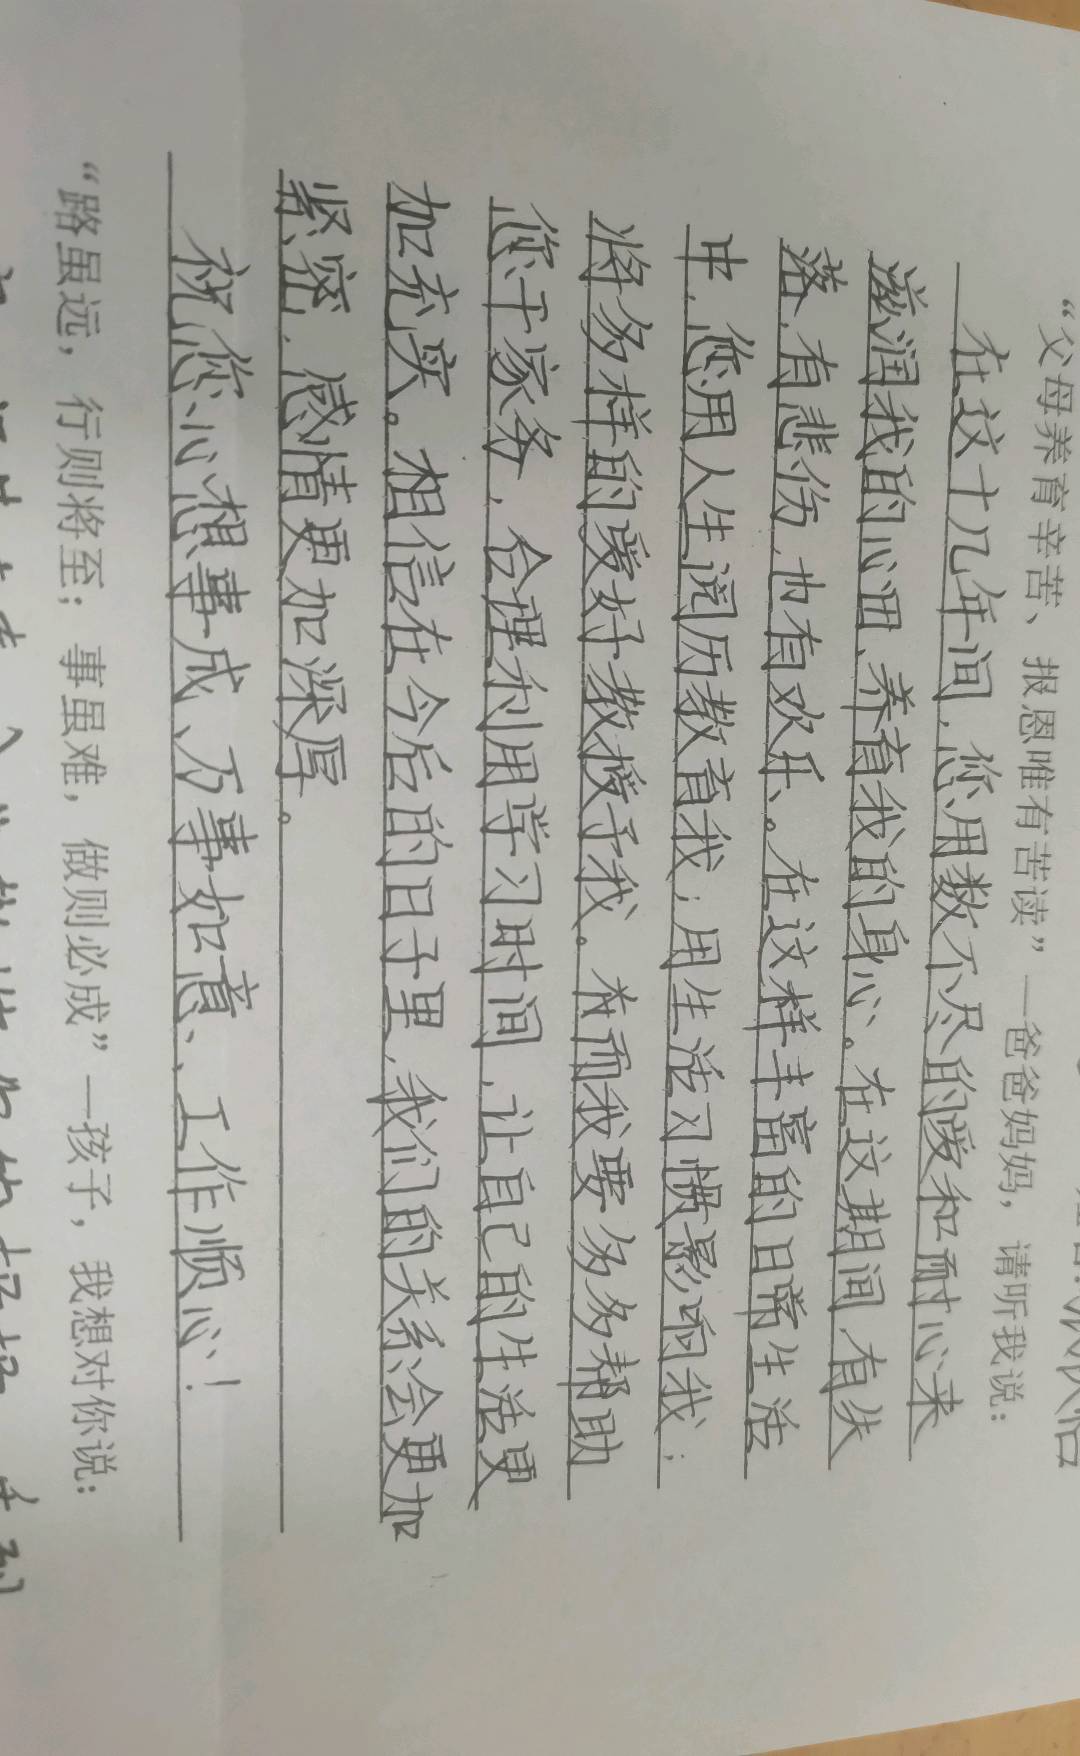 “父母养育辛苦、报恩唯有苦读”—爸爸妈妈，请听我说：
在这十几年间，您用数不尽的爱和耐心来
滋润我的心田、养育我的身心。在这期间有失
落，有悲伤，也有欢乐。在这样丰富的日常生活
中，您用人生阅历教育我；用生活习惯影响我；
将多样的爱好教授予我。有而我要多多帮助
您干家务，合理利用学习时间，让自己的生活更
加充实。相信在今后的日子里，我们的关系会更加
紧密，感情更加深厚。
祝您心想事成、万事如意、工作顺心！
“路虽远，行则将至；事虽难，做则必成”—孩子，我想对你说：